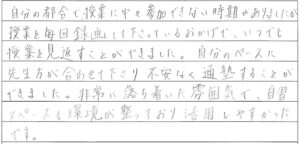 自分の都合で授業に中々参加できない時期がありましたが
授業を毎回録画して下さっているおかげで、いつでも
授業を見返すことができました。自分のペースに
先生方が合わせて下さり不安なく通塾することが
できました。非常に落ち着いた雰囲気で、自習
スペースも環境が整っており活用しやすかった
です。